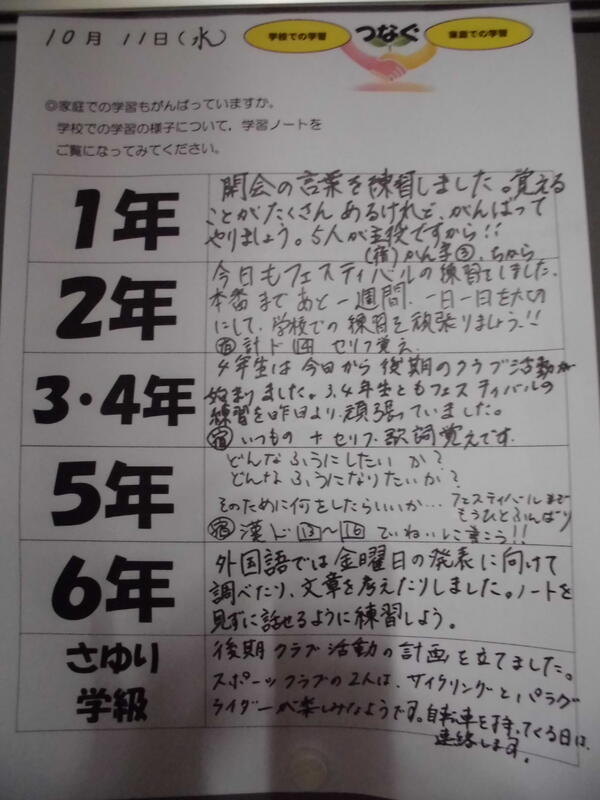 10月 11日(水)
学校での学習
つなぐ
家庭での学習
◎家庭での学習もがんばっていますか。
学校での学習の様子について、学習ノートを
ご覧になってみてください。
1年
開会の言葉を練習しました。覚える
ことがたくさんあるけれど、がんばって
やりましょう。5人が主役ですから!!
(宿)かん字②、ちから
2年
今日もフェスティバルの練習をしました。
本番まであと一週間、一日一日を大切
にして、学校での練習を頑張りましょう!!
宿 計ド 14 セリフ覚え
3・4年
4年生は今日から後期のクラブ活動が
始まりました。3.4年生ともフェスティバルの
練習を昨日より頑張っていました。
宿 いつもの + セリフ・歌詞覚えです。
5年
どんなふうにしたいか?
どんなふうになりたいか?
そのために何をしたらいいか… フェスティバルまで
もうひとふんばり
宿 漢ド 13～16 ていねいに書こう!!
6年
外国語では金曜日の発表に向けて
調べたり、文章を考えたりしました。ノートを
見ずに話せるように練習しよう。
さゆり
学級
後期クラブ活動の計画を立てました。
スポーツクラブの2人は、サイクリングとパラグ
ライダーが楽しみなようです。自転車を持ってくる日は、
連絡します。